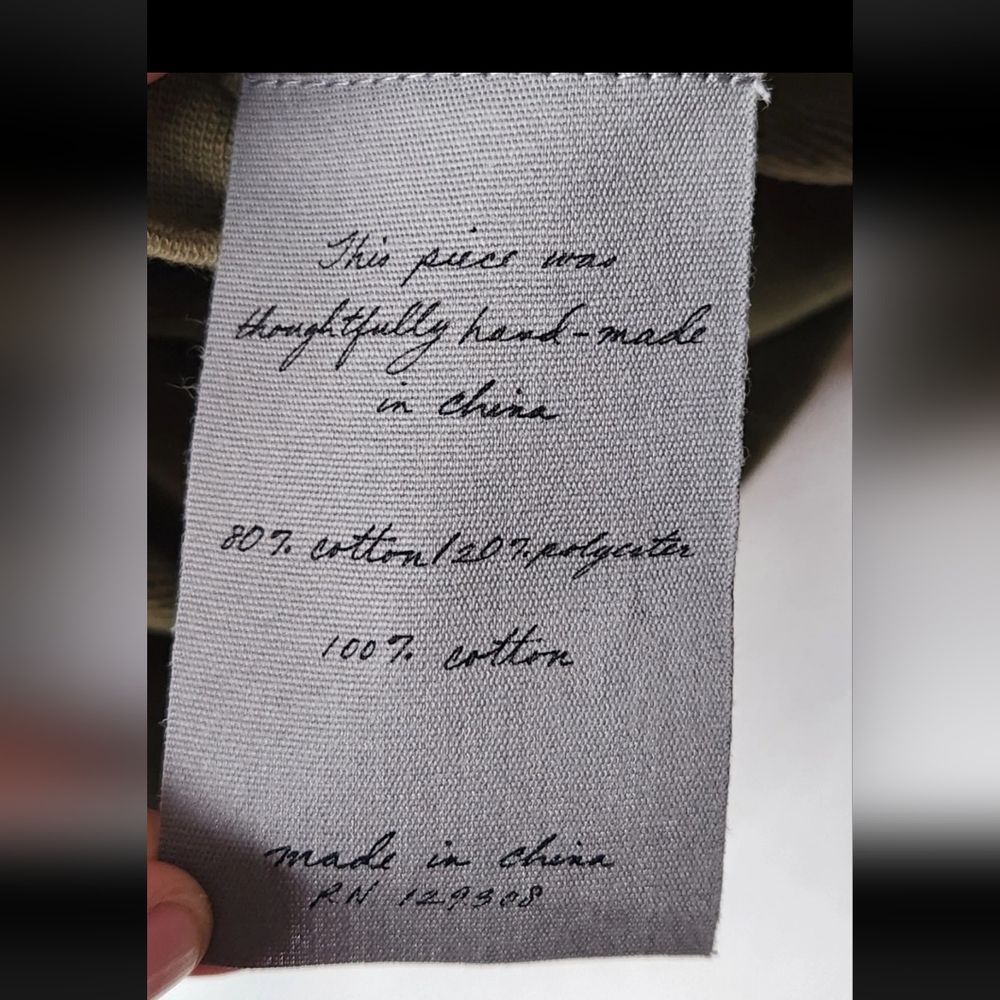 This piece was
thoughtfully hand-made
in china
80% cotton/20% polyester
100% cotton
made in china
RN 129308